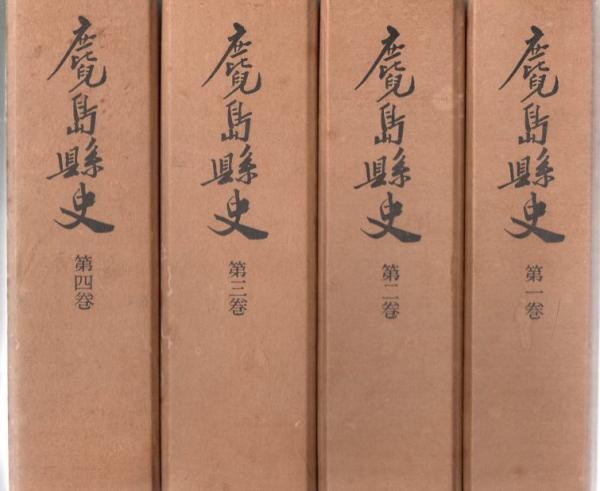 麑島縣史
第一巻
麑島縣史
第二巻
麑島縣史
第三巻
麑島縣史
第四巻